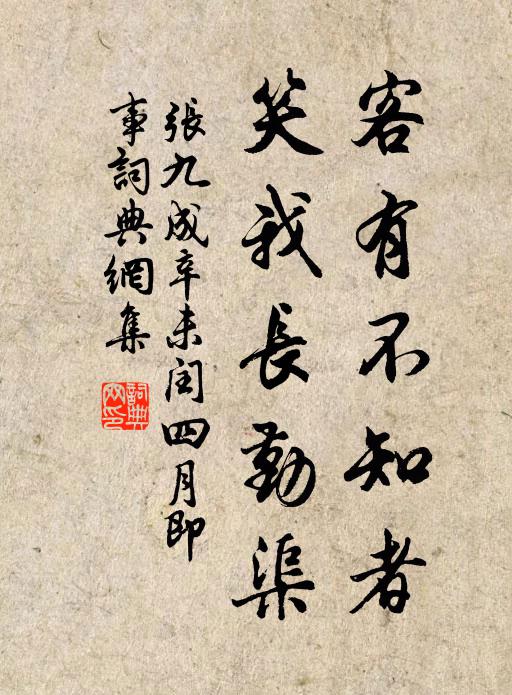 客有不知者
笑我長勤渠
張九成辛未閏四月即
事詞典網集
詞典網印